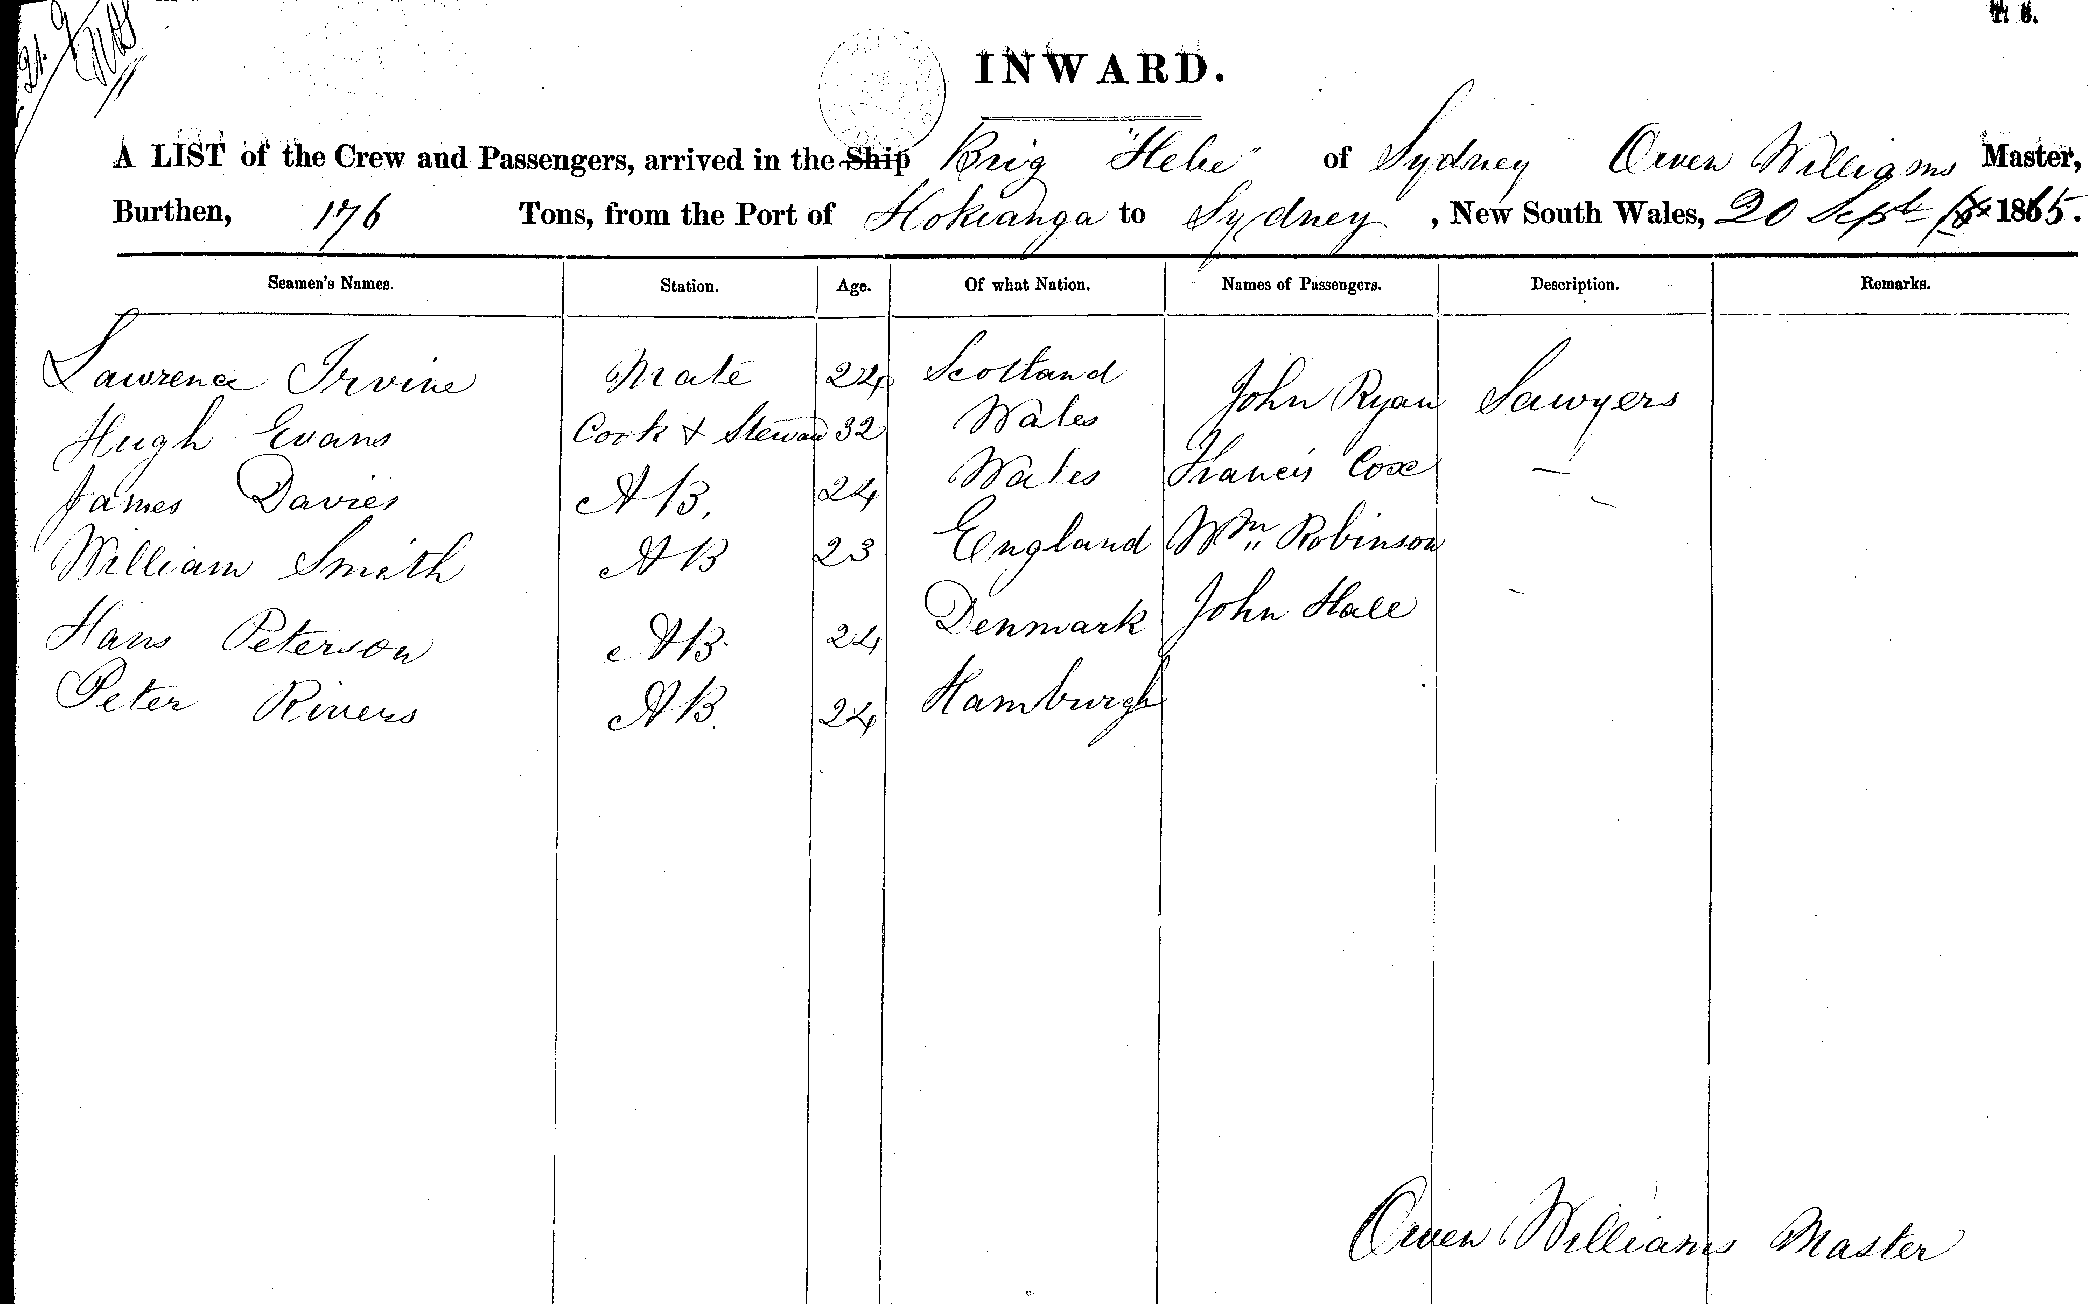 INWARD.
A LIST of the Crew and Passengers, arrived in the Ship Brig "Hebe" of Sydney Owen Williams Master,
Burthen, 176 Tons, from the Port of Hokianga to Sydney, New South Wales, 20 Sept 1865.
Seamen's Names. Station. Age. Of what Nation. Names of Passengers. Description. Remarks.
Lawrence Irvine Mate 24 Scotland John Ryan Sawyers
Hugh Evans Cook & Steward 32 Wales Francis Coxe —
James Davies AB. 24 Wales Wm Robinson -
William Smith AB 23 England John Hall -
Hans Peterson AB. 24 Denmark
Peter Rivers AB. 24 Hamburgh
Owen Williams Master